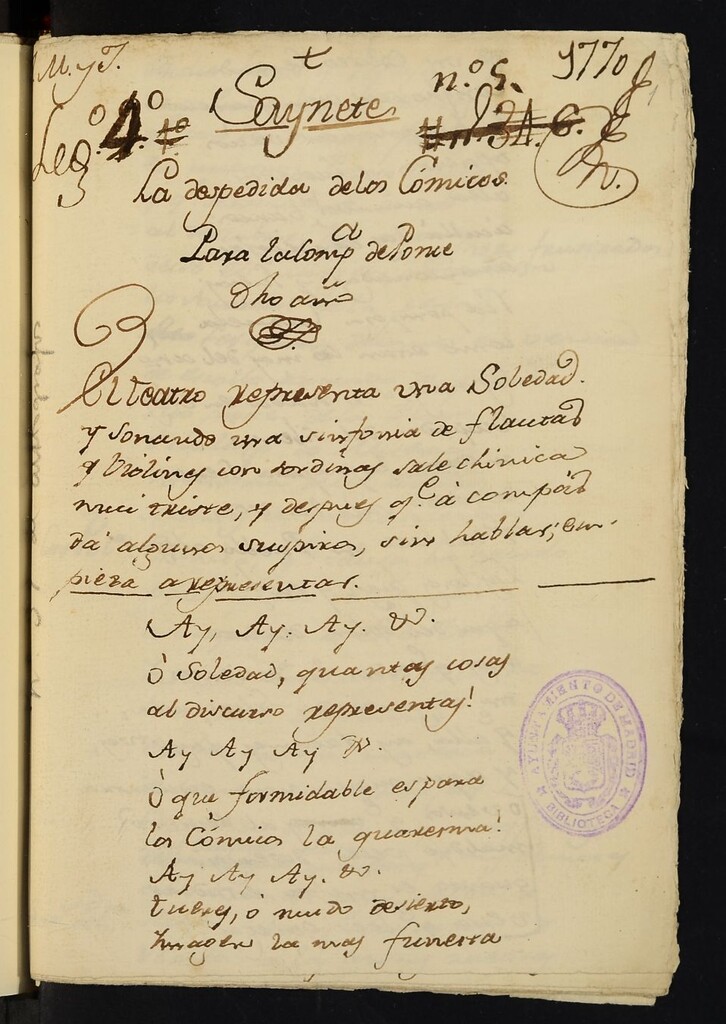 M. y T.
1770
Leg.º 4.º
Saynete
n.º 5.
La despedida delos Cómicos.
Para la Comp.a de Ponce
dho año
El teatro representa una Soledad.
y sonando una sinfonia de flautas
y Violines con sordinas sale chinica
mui triste, y despues q.e à compás
dà algunos suspiros, sin hablar, em-
pieza a representar.
Ay, Ay. Ay. &.
ò Soledad, quantas cosas
al discurso representas!
Ay Ay Ay &.
ò que formidable es para
los Cómicos la quaresma!
Ay Ay Ay. &.
tu eres, ò mudo desierto,
Imagen la mas funesta
AYUNTAMIENTO DE MADRID
BIBLIOTECA